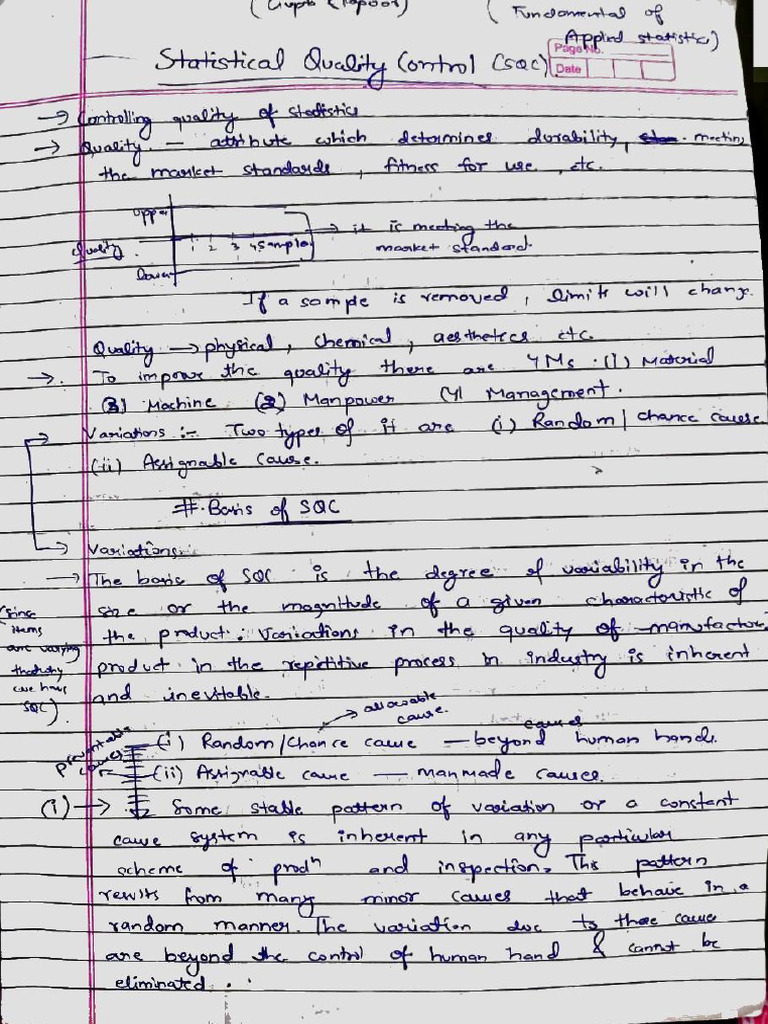 (Gupta & Kapoor)
(Fundamental of
Applied statistics)
Page No.
Date
Statistical Quality Control (SQC)
→ Controlling quality of statistics
→ Quality — attribute which determines durability, meeting
the market standards, fitness for use, etc.
upper
quality 1 2 3 4 Sample → it is meeting the
market standard.
Lower
If a sample is removed, limits will change.
Quality → physical, chemical, aesthetics etc.
→. To improve the quality there are 4Ms. (i) Material
(3) Machine (2) Manpower (4) Management.
→ Variations :- Two types of it are (i) Random/chance cause
(ii) Assignable cause.
#. Basis of SQC
→ Variations.
→ The basis of SQC is the degree of variability in the
size or the magnitude of a given characteristic of
the product. Variations in the quality of manufacture
product in the repetitive process in industry is inherent
and inevitable.
(since
items
are varying
we have
SQC).
→ allowable
cause.
preventable
causes
(i) Random/Chance cause — causes beyond human hands.
(ii) Assignable cause — manmade causes.
(i) → Some stable pattern of variation or a constant
cause system is inherent in any particular
scheme of prodⁿ and inspection. This pattern
results from many minor causes that behave in a
random manner. The variation due to these cause
are beyond the control of human hand & cannot be
eliminated.